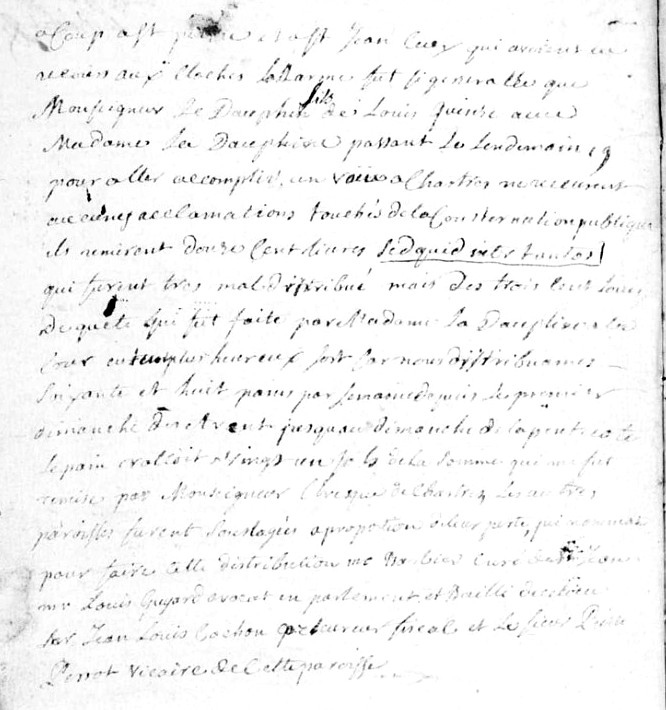 a Coup ast pierre et ast Jean Cury qui avoient eu
recours aux Cloches Lallarme fut si generalle que
Monseigneur Le Dauphin fils de Louis quinze avec
Madame La Dauphine passant Le Lendemain
pour aller accomplir un voëu a Chartres ne recurent
aucunes acclamations touchés de la Consternation publique
ils remirent douze Cent Livres Sed quid inter tantos
qui furent tres mal distribué mais des trois Cent Livres
De quete qui fut faite par Madame La Dauphine
heureux sort car nous distribuames
Soixante et huit pains par semaine depuis Le premier
dimanche de Lavent jusquau dimanche de la pentecote
Le pain valloit vingt un sols de la somme qui me fut
remise par Monseigneur Leveque de Chartres Les autres
paroisses furent soulagées a propotion de leur perte,
pour faire Cette distribution Curé de st Jean
mr Louis Guyard avocat en parlement et Bailli
Jean Louis Cochon procureur fiscal et Le sieur
Perrot vicaire de Cette paroisse